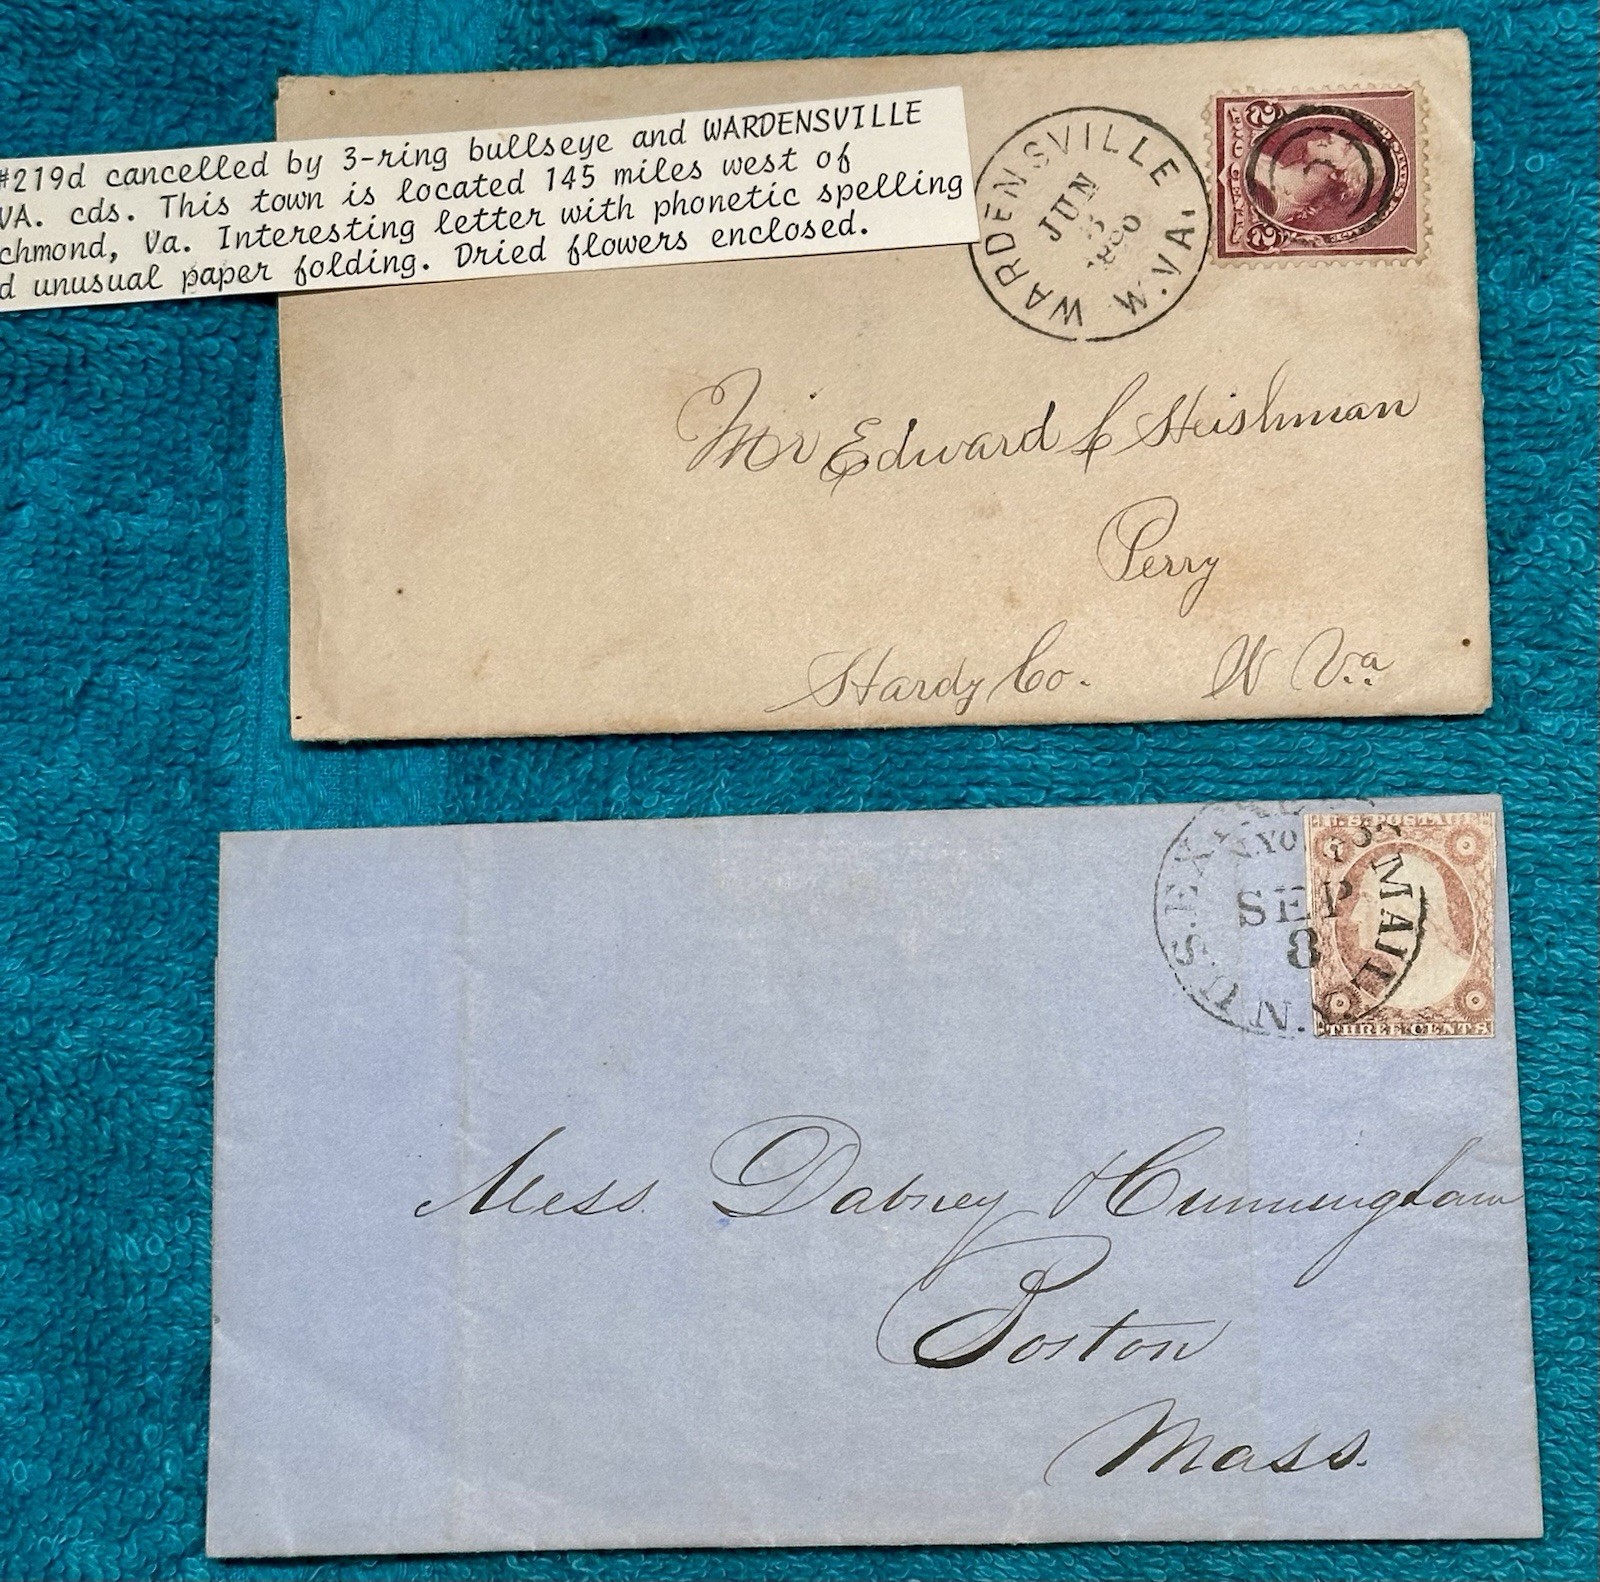 #219d cancelled by 3-ring bullseye and WARDENSVILLE
VA. cds. This town is located 145 miles west of
chmond, Va. Interesting letter with phonetic spelling
d unusual paper folding. Dried flowers enclosed.
WARDENSVILLE W. VA.
JUN
Mr Edward C Heishman
Perry
Hardy Co. W Va
U.S. POSTAGE
THREE CENTS
U.S. EXPRESS MAIL
N.Y.
SEP
8
Mess Dabney & Cunningham
Boston
Mass.